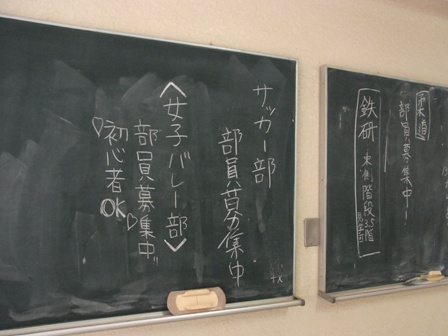 柔道
部員募集中!
鉄研 東側階段3.5階
サッカー部
部員募集中
〈女子バレー部〉
部員募集中
♡初心者OK♡